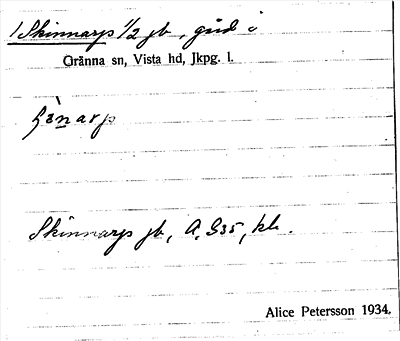 1 Skinnarps 1/2 jb, gård i
Gränna sn, Vista hd, Jkpg. l.
Skinnarps jb, A. G35, kk.
Alice Petersson 1934.